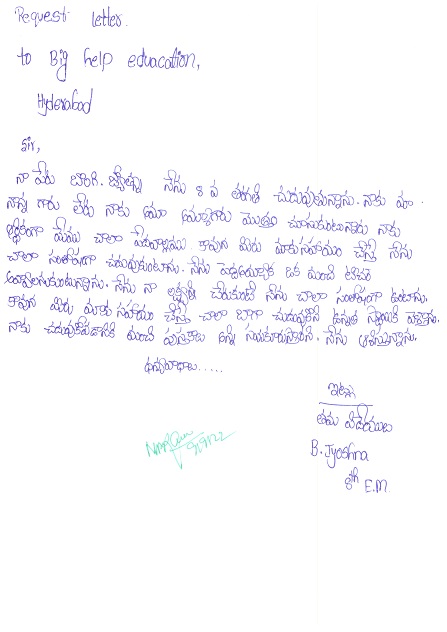 Request letter.
to Big help eduacation,
Hyderabad
Sir,
నా పేరు బొంగి. జ్యోత్స్న నేను 8 వ తరగతి చదువుతున్నాను. నాకు మా
నాన్న గారు లేరు నాకు మా అమ్మగారు మొత్తం చూసుకుంటున్నారు నాకు
ఆర్థికంగా మేము చాలా పేదవాళ్ళము కావున మీరు మాకు సహాయం చేస్తే నేను
చాలా సంతోషంగా చదువుకుంటాను. నేను పెద్దయ్యాక ఒక మంచి టీచర్
అవ్వాలనుకుంటున్నాను. నేను నా లక్ష్యాన్ని చేరుకుంటే నేను చాలా సంతోషంగా ఉంటాను.
కావున మీరు మాకు సహాయం చేస్తే చాలా బాగా చదువుకొని ఉన్నత స్థాయికి వెళ్తాను.
నాకు చదువుకోవడానికి మంచి పుస్తకాలు అన్ని సమకూరుస్తారని. నేను ఆశిస్తున్నాను.
ధన్యవాదాలు.....
ఇట్లు
తమ విధేయురాలు
B. Jyoshna
8th E.M.